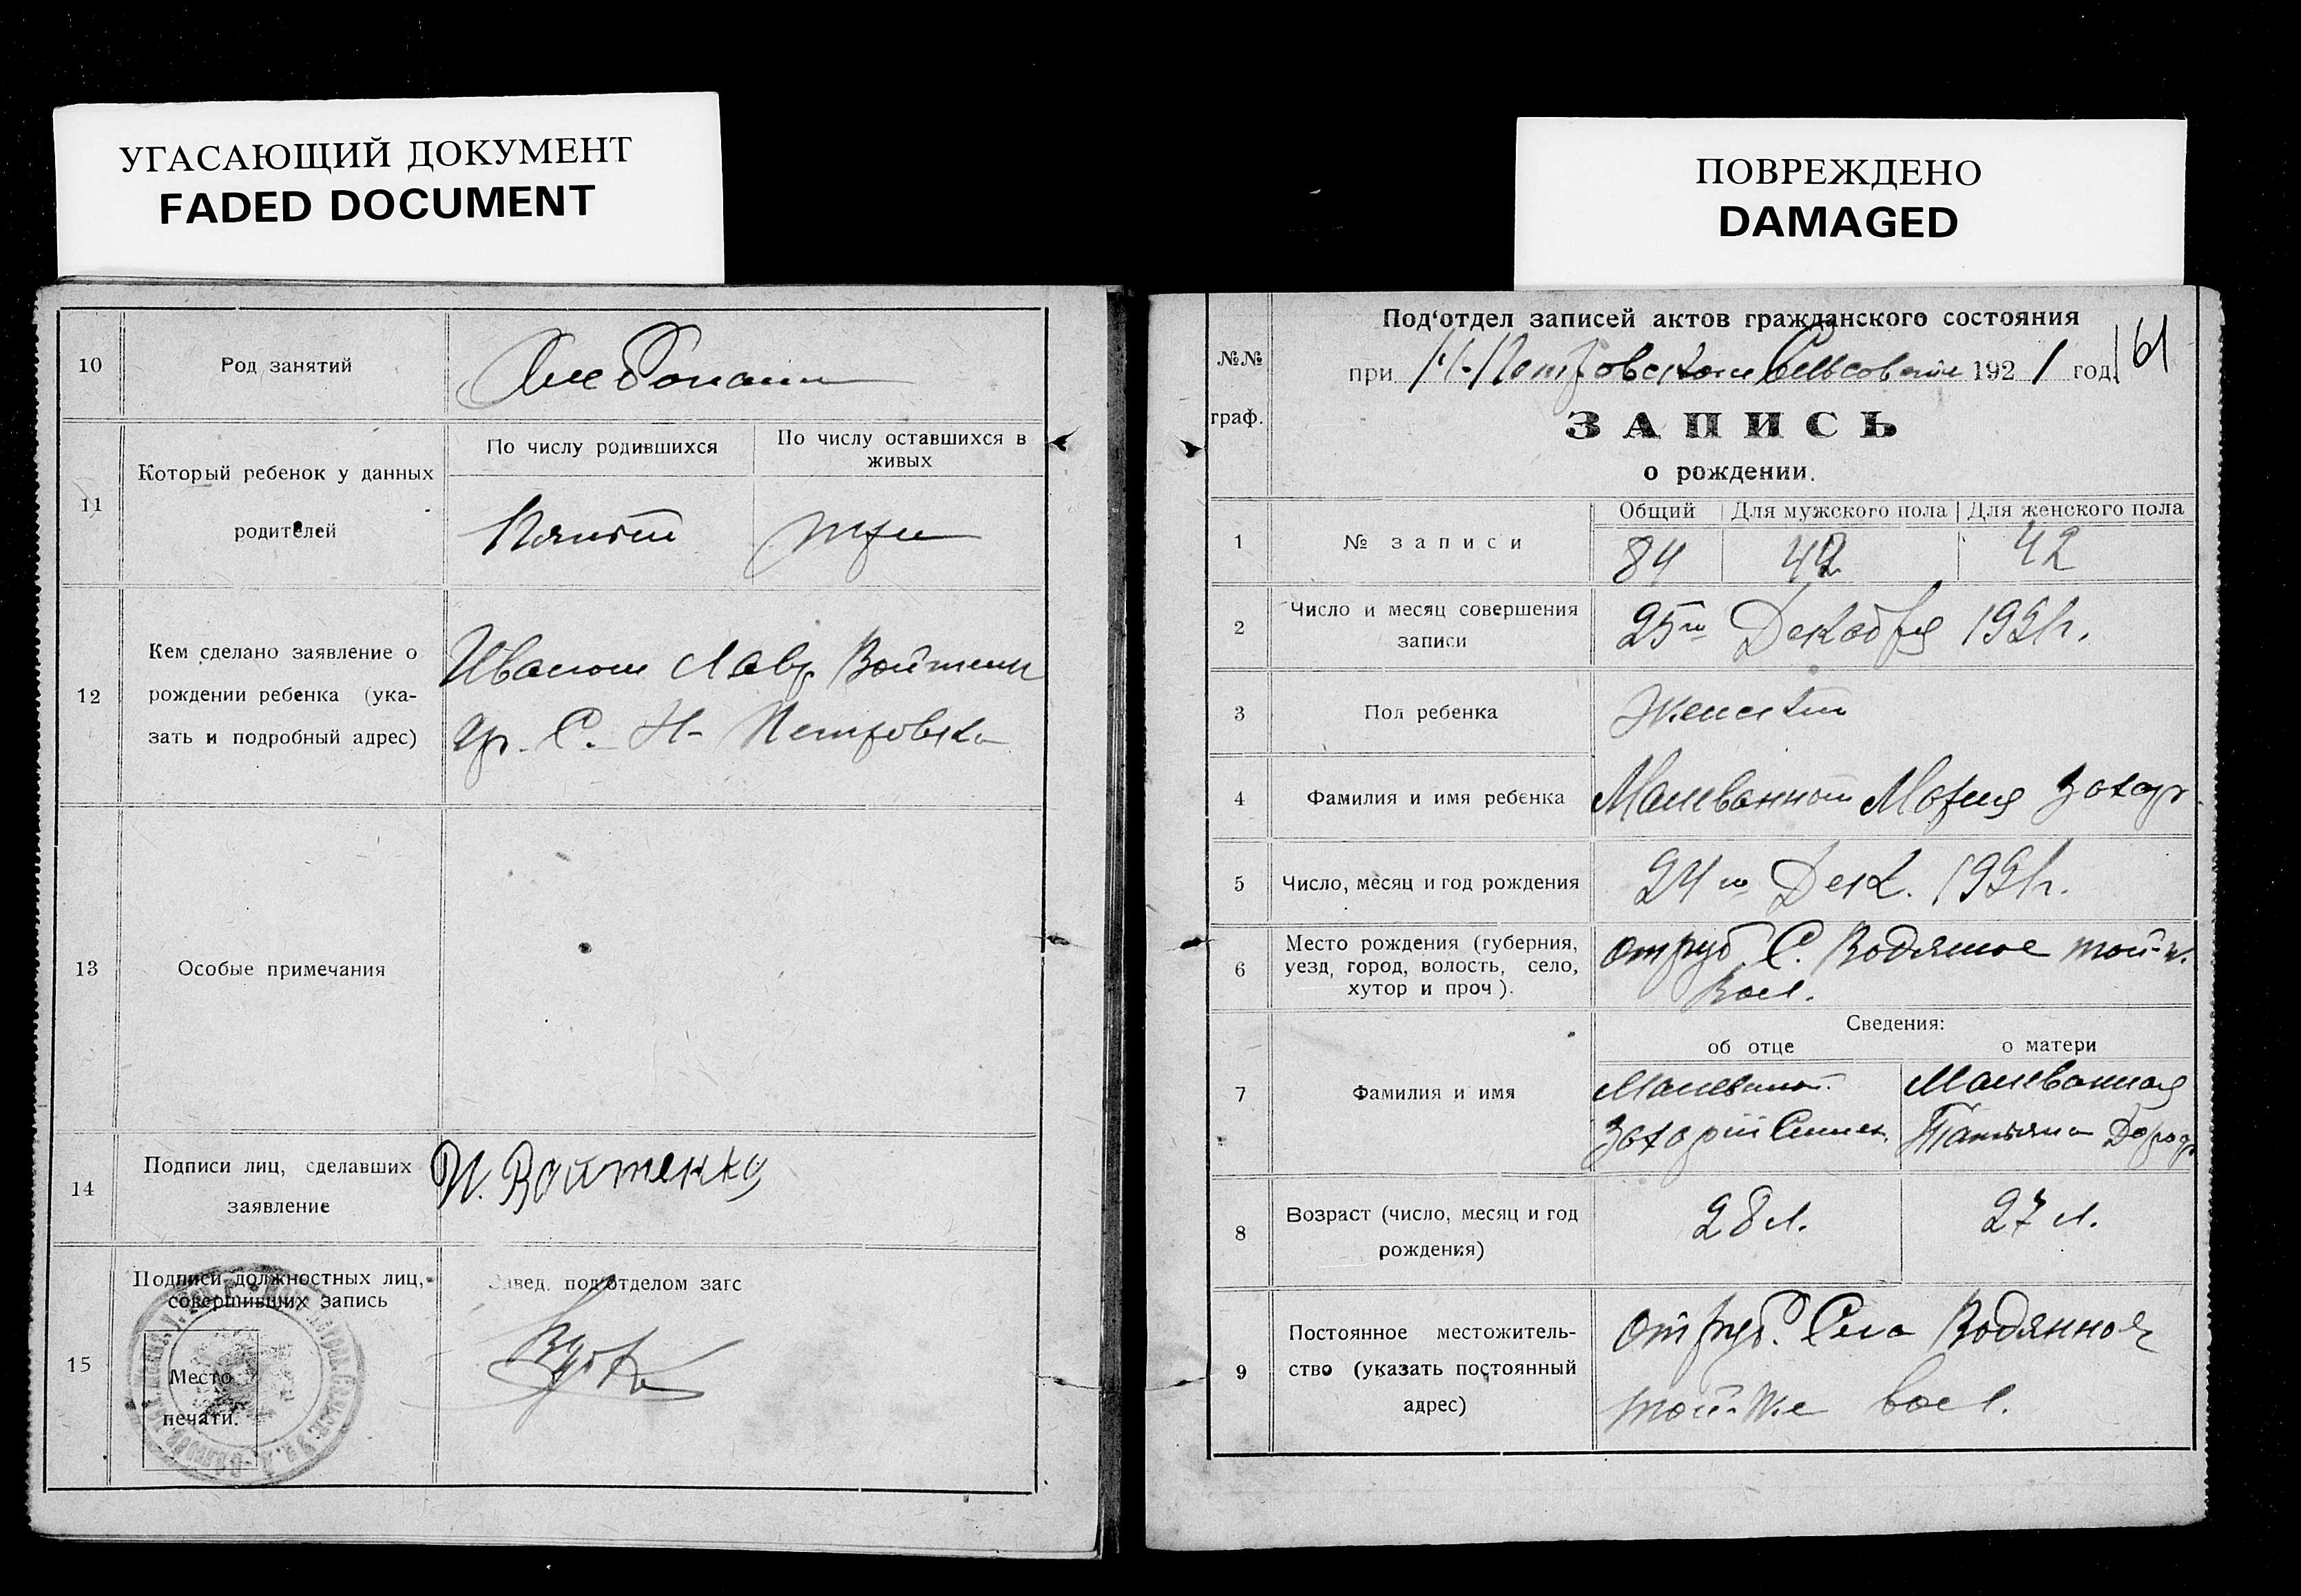 УГАСАЮЩИЙ ДОКУМЕНТ
FADED DOCUMENT
ПОВРЕЖДЕНО
DAMAGED
10
Род занятий
Хлебопаш
11
Который ребенок у данных
родителей
По числу родившихся
По числу оставшихся в
живых
Пятый
три
12
Кем сделано заявление о
рождении ребенка (ука-
зать и подробный адрес)
Иваном Лавр Войтенк
гр. С. Н- Петровка
13
Особые примечания
14
Подписи лиц, сделавших
заявление
И. Войтенко
15
Подписи должностных лиц,
совершивших запись
Место
печати.
Завед. под'отделом загс
№№
граф.
Под'отдел записей актов гражданского состояния
при Н-Петровском Сельсовете 1921 год.
61
ЗАПИСЬ
о рождении.
1
№ записи
Общий
Для мужского пола
Для женского пола
84
42
42
2
Число и месяц совершения
записи
25го Декабря 1921г.
3
Пол ребенка
Женский
4
Фамилия и имя ребенка
Малеванной Мария Захар
5
Число, месяц и год рождения
24го Дек. 1921г.
6
Место рождения (губерния,
уезд, город, волость, село,
хутор и проч).
Отруб. С. Водяное той-ж.
Вол.
Сведения:
об отце
о матери
7
Фамилия и имя
Малеванной.
Захарий Симен.
Малеванная
Татьяна
8
Возраст (число, месяц и год
рождения)
28 л.
27 л.
9
Постоянное местожитель-
ство (указать постоянный
адрес)
Отруб. Села Водянное
той-же вол.